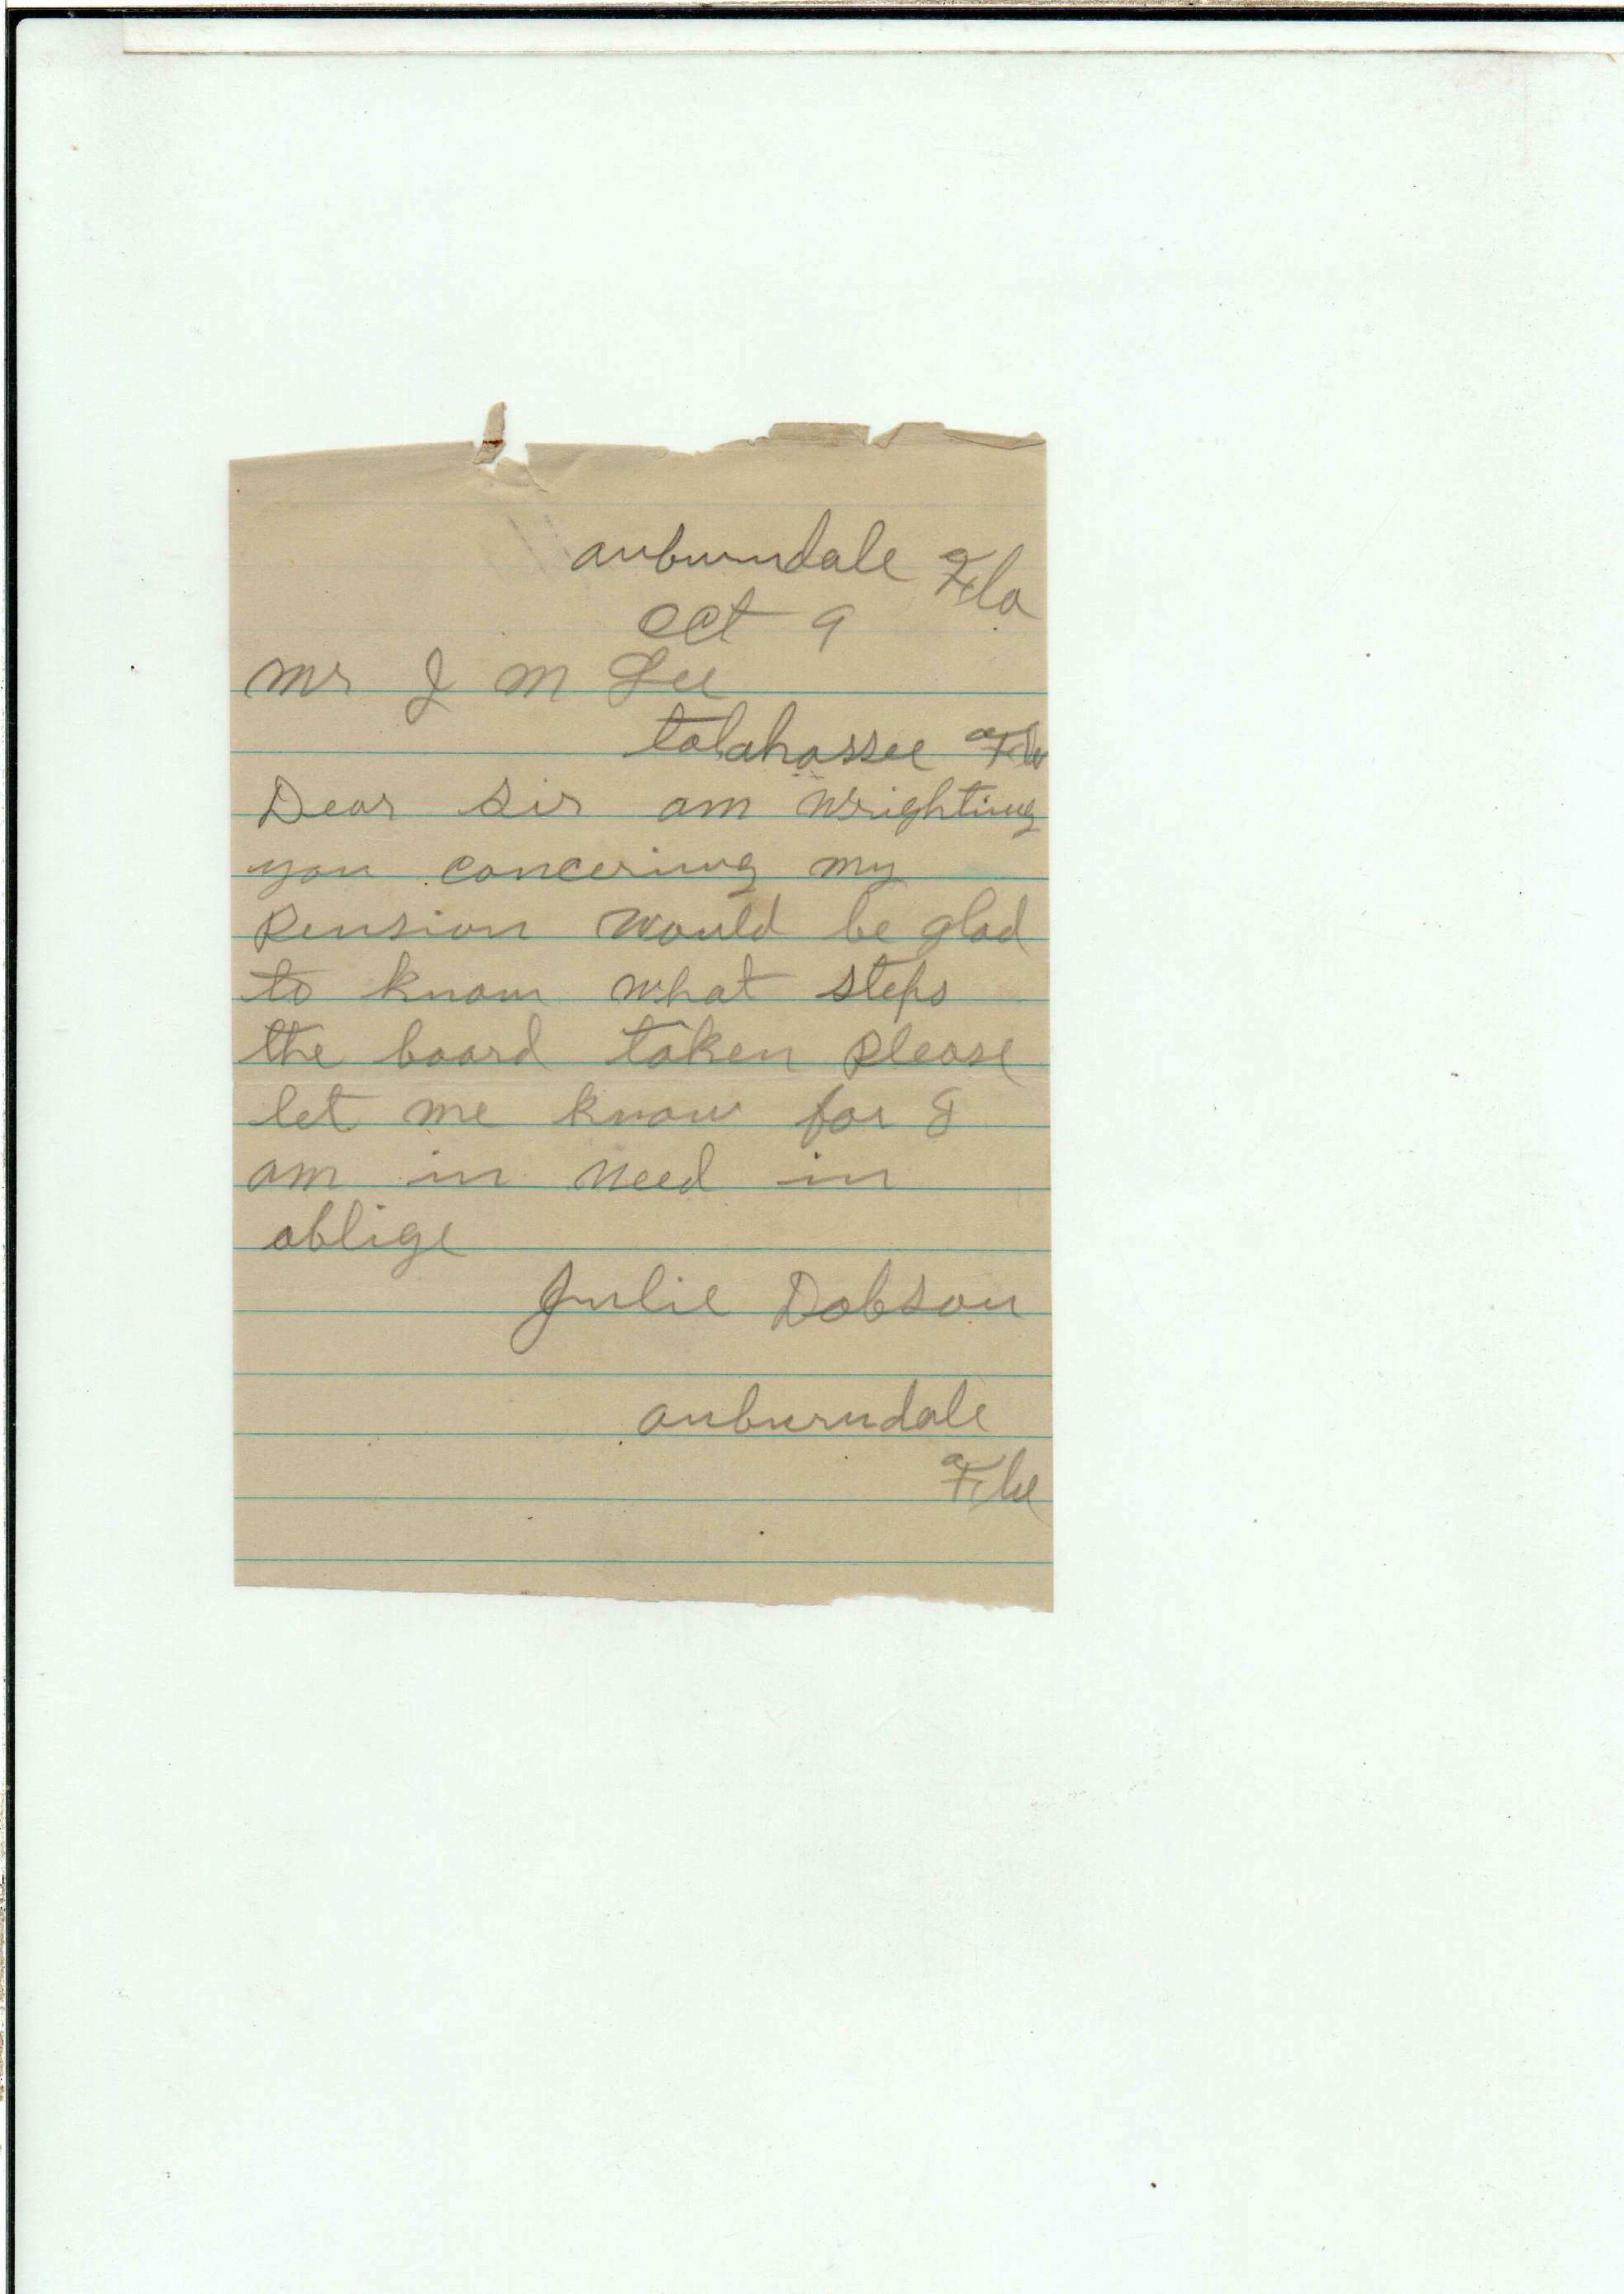 auburndale Fla
Oct 9
mr J M Lee
talahassee Fla
Dear Sir am wrighting
you concering my
Pension would be glad
to know what steps
the board taken Please
let me know for I
am in need in
oblige
Julie Dobson
auburndale
Fla